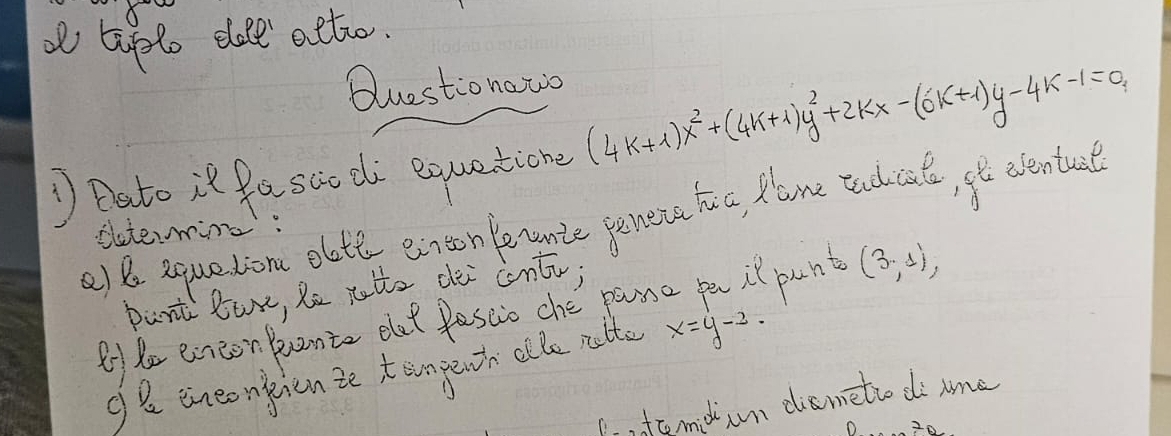 al triplo dell' altro.
Questionario
1) Dato il fascio di equazione (4K+1)x²+(4K+1)y²+2Kx-(6K+1)y-4K-1=0,
determina:
a) le equazioni delle circonferenze generatrici, l'asse radicale, gli eventuali
punti base, la retta dei centri;
b) la circonferenza del fascio che passa per il punto (3;1),
c) le circonferenze tangenti alla retta x=y-2.
estremi di un diametro di una